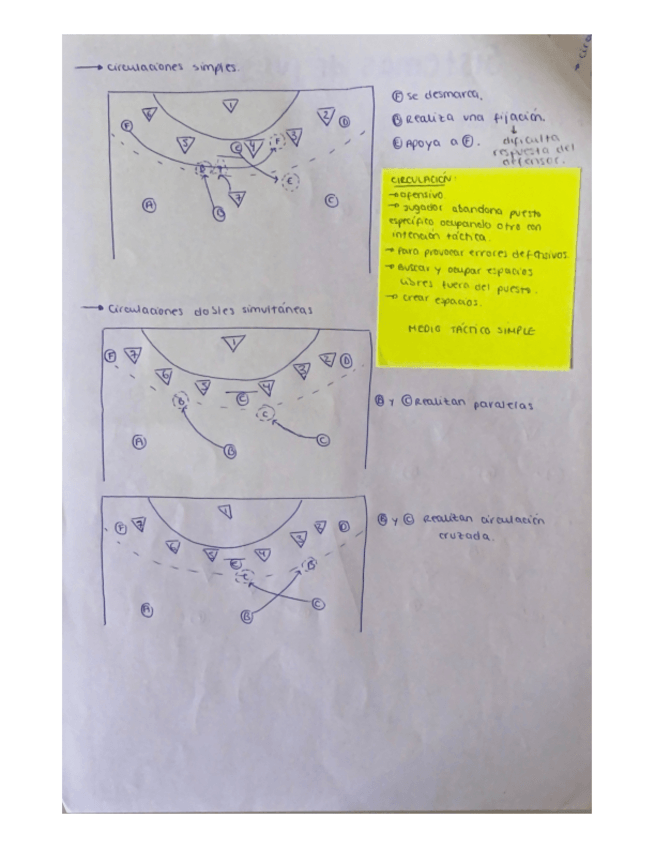 → circulaciones simples.
Ⓕ se desmarca.
Ⓑ Realiza una fijación.
↓
dificulta
respuesta del
defensor.
Ⓔ Apoya a Ⓕ.
CIRCULACIÓN:
→ ofensivo.
→ Jugador abandona puesto
específico ocupando otro con
intención táctica.
→ Para provocar errores defensivos.
→ Buscar y ocupar espacios
libres fuera del puesto.
→ crear espacios.
MEDIO TÁCTICO SIMPLE
→ Circulaciones dobles simultáneas
Ⓑ Y Ⓒ Realizan paralelas
Ⓑ y Ⓒ Realizan circulación
cruzada.